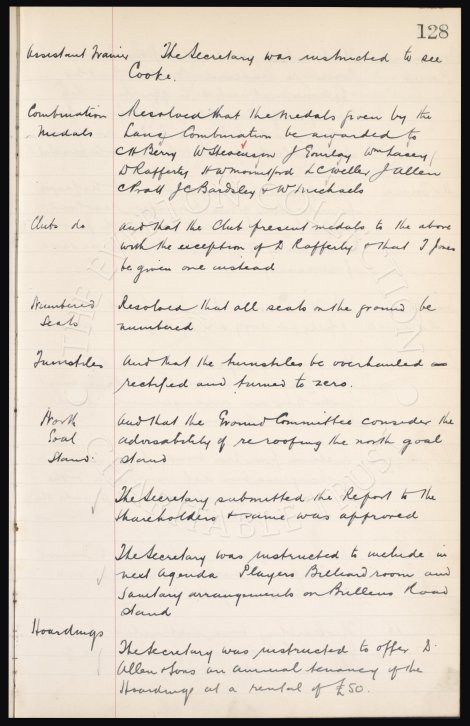 128
Assistant Trainer The Secretary was instructed to see
Cooke.
Combination Resolved that the medals given by the
Medals Lancs Combination be awarded to
C H Berry W Stevenson J Gourlay Wm Lasey
D Rafferty H W Mountford L C Weller J Allen
C Pratt J C Bardsley & W Michaels
Clubs do And that the Club present medals to the above
with the exception of D Rafferty & that T Jones
be given one instead
Numbered Resolved that all seats on the ground be
Seats numbered
Turnstiles And that the turnstiles be overhauled
rectified and turned to zero.
North And that the Ground Committee consider the
Goal advisability of reroofing the north goal
Stand. stand
The Secretary submitted the Report to the
shareholders & same was approved
The Secretary was instructed to include in
next agenda Players Billiard room and
Sanitary arrangements on Bullens Road
stand
Hoardings
The Secretary was instructed to offer D.
Allen & Sons an annual tenancy of the
Hoardings at a rental of £50.
THE EVERTON COLLECTION
CHARITABLE TRUST